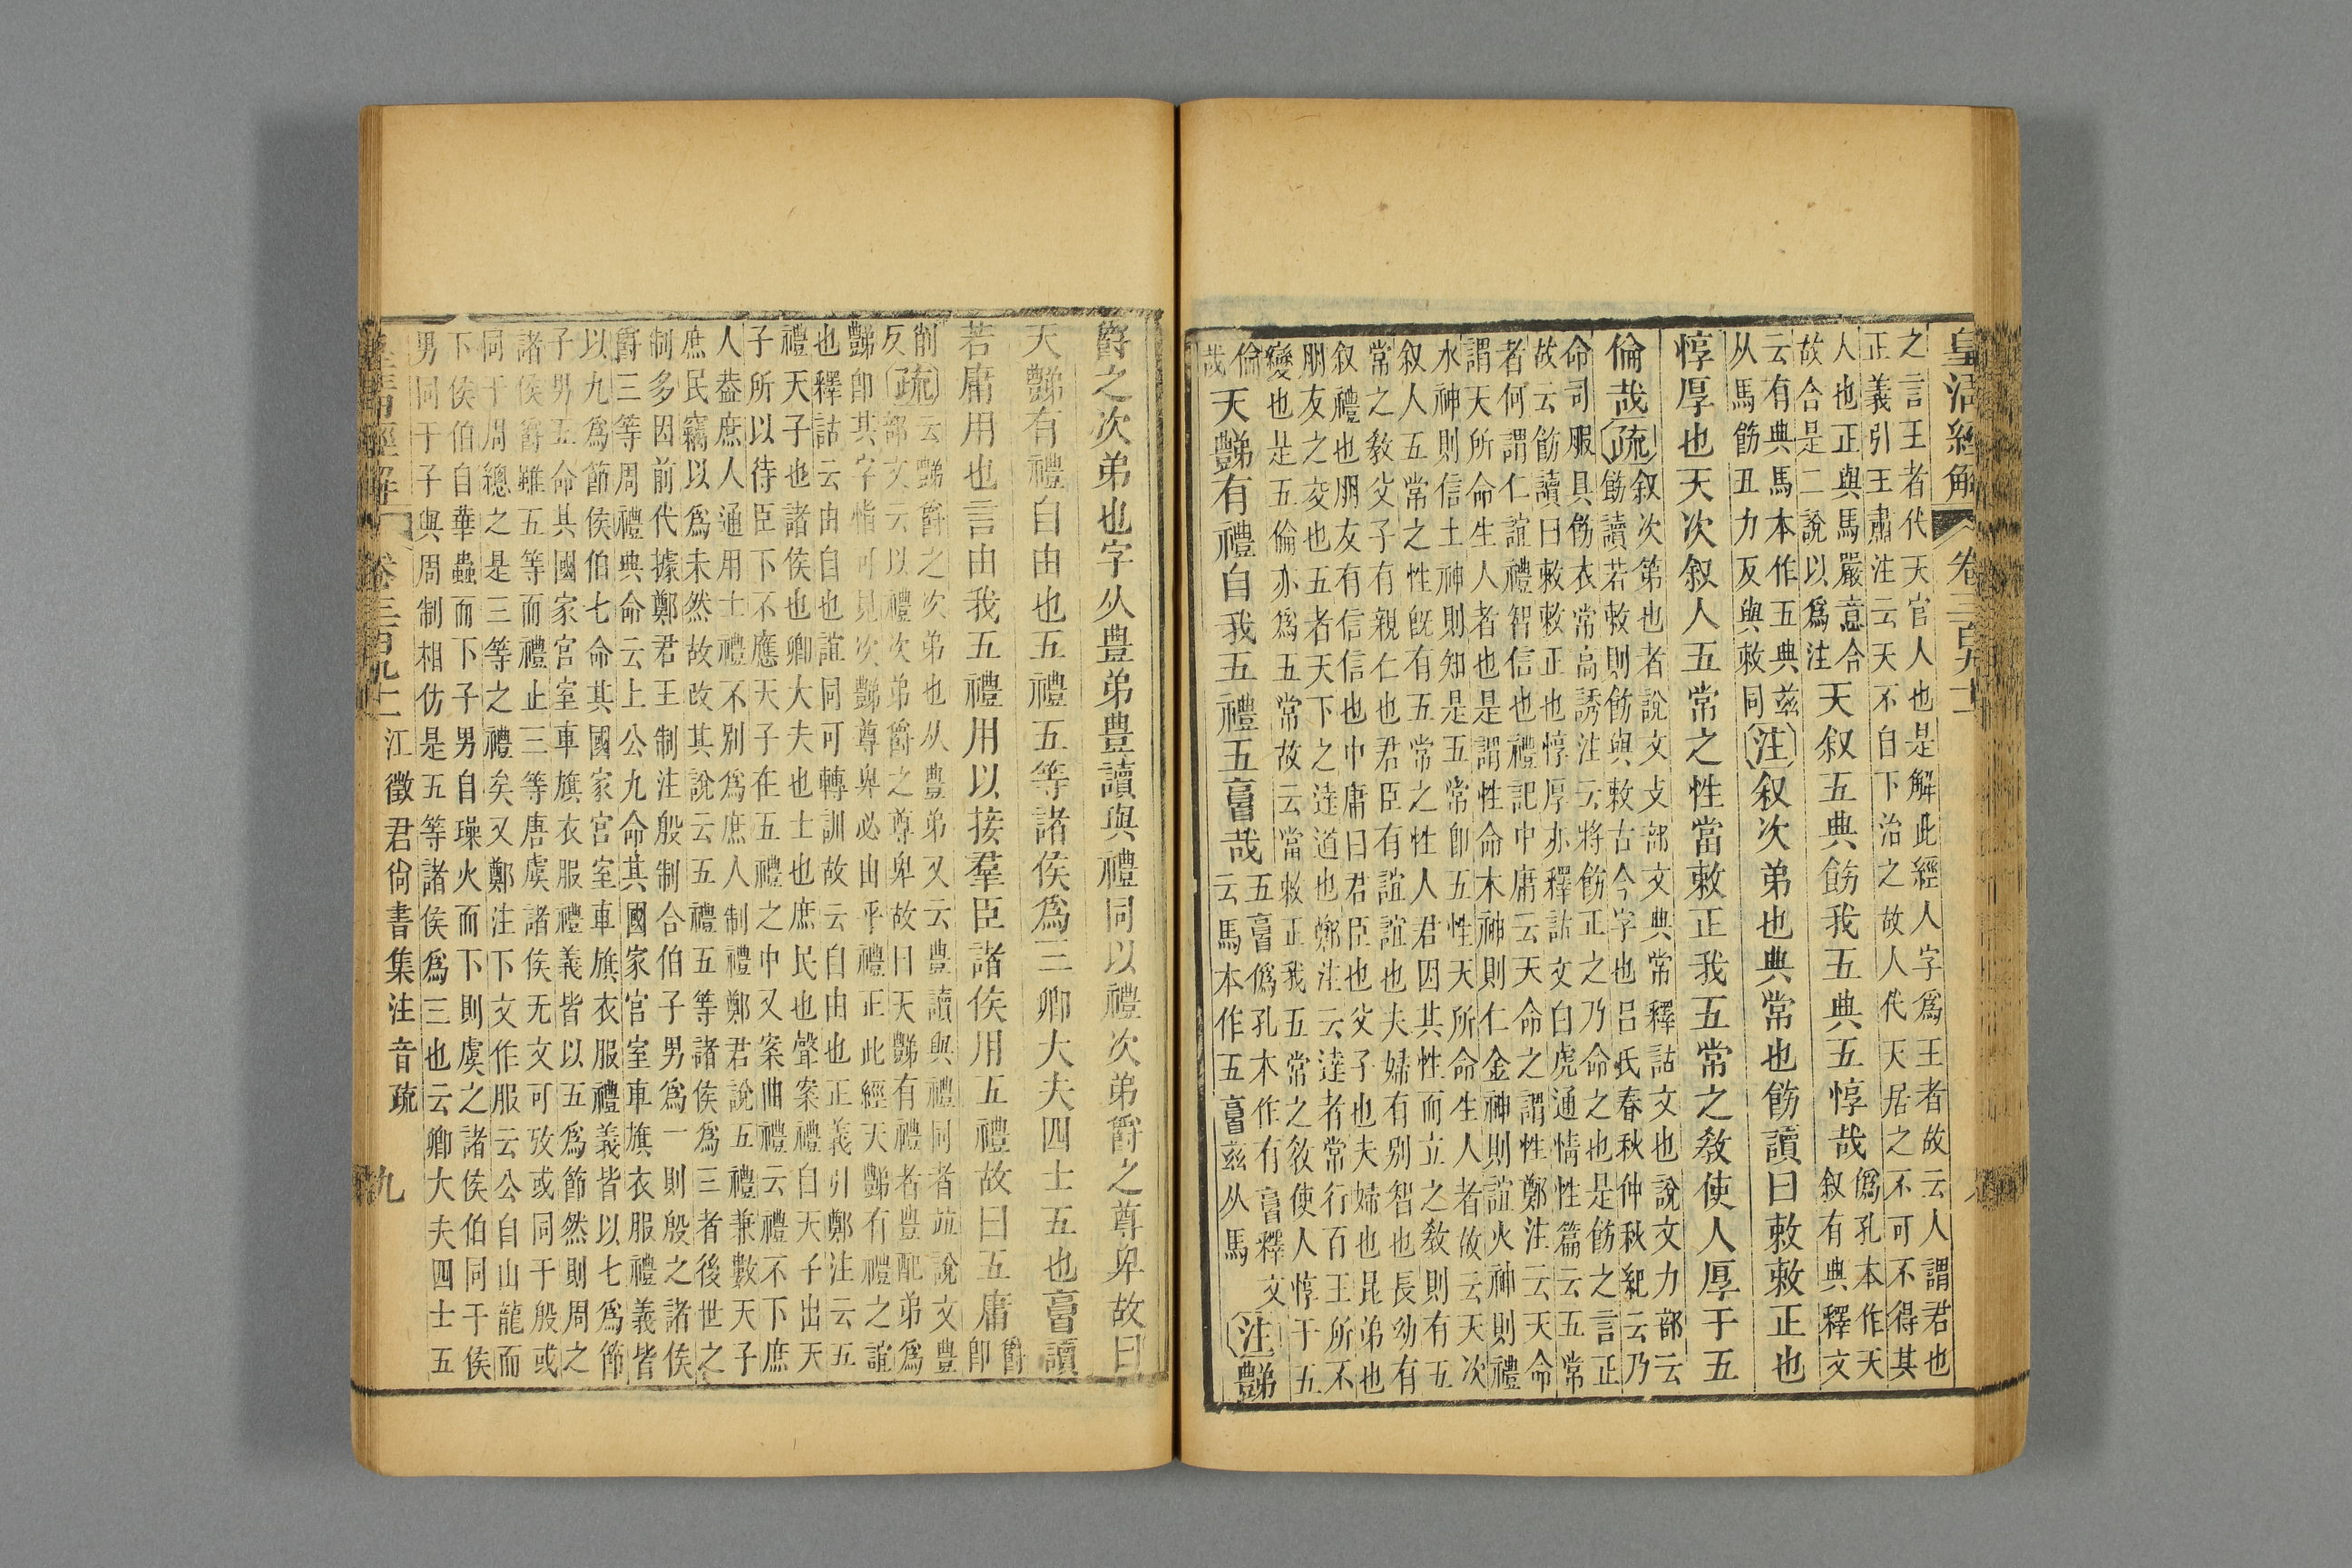 皇清經解 卷三百九十
之言王者代天官人也是解此經人字爲王者故云人謂君也
正義引王肅注云天不自下治之故人代天居之不可不得其
人也正與馬嚴意合
故合是二說以爲注
天叙五典飭我五典五惇哉
僞孔本作天
叙有典釋文
云有典馬本作五典兹
从馬飭丑力反與敕同
〔注〕叙次弟也典常也飭讀曰敕敕正也
惇厚也天次叙人五常之性當敕正我五常之教使人厚于五
倫哉〔疏〕
叙次第也者說文攴部文典常釋詁文也說文力部云
飭讀若敕則飭與敕古今字也呂氏春秋仲秋紀云乃
命司服具飭衣常高誘注云將飭正之乃命之也是飭之言正
故云飭讀曰敕敕正也惇厚亦釋詁文白虎通情性篇云五常
者何謂仁誼禮智信也禮記中庸云天命之謂性鄭注云天命
謂天所命生人者也是謂性命木神則仁金神則誼火神則禮
水神則信土神則知是五常卽五性天所命生人者攸云天次
叙人五常之性旣有五常之性人君因其性而立之教則有五
常之教父子有親仁也君臣有誼誼也夫婦有別智也長幼有
叙禮也朋友有信信也中庸曰君臣也父子也夫婦也昆弟也
朋友之交也五者天下之達道也鄭注云達者常行百王所不
變也是五倫亦爲五常故云當敕正我五常之教使人惇于五
倫
哉
天豑有禮自我五禮五𩫖哉
五𩫖僞孔本作有𩫖釋文
云馬本作五𩫖兹从馬
〔注〕豑
爵之次弟也字从豊弟豊讀與禮同以禮次弟爵之尊卑故曰
天豑有禮自由也五禮五等諸侯爲三卿大夫四士五也𩫖讀
若庸用也言由我五禮用以接羣臣諸侯用五禮故曰五庸
爵
卽
削
反
〔疏〕
云豑爵之次弟也从豊弟又云豊讀與禮同者竝說文豊
部文云以禮次弟爵之尊卑故曰天豑有禮者豊配弟爲
豑卽其字恉可見次豑尊卑必由乎禮正此經天豑有禮之誼
也釋詁云由自也誼同可轉訓故云自由也正義引鄭注云五
禮天子也諸侯也卿大夫也士也庶民也聲案禮白天子出天
子所以待臣下不應天子在五禮之中又案曲禮云禮不下庶
人葢庶人通用士禮不別爲庶人制禮鄭君說五禮兼數天子
庶民竊以爲未然故改其說云五禮五等諸侯爲三者後世之
制多因前代據鄭君王制注殷制合伯子男爲一則殷之諸侯
爵三等周禮典命云上公九命其國家宮室車旗衣服禮義皆
以九爲節侯伯七命其國家宮室車旗衣服禮義皆以七爲節
子男五命其國家宮室車旗衣服禮義皆以五爲節然則周之
諸侯爵雖五等而禮止三等唐虞諸侯无文可攷或同于殷或
同于周總之是三等之禮矣又鄭注下文作服云公自山龍而
下侯伯自華蟲而下子男自璪火而下則虞之諸侯伯同于侯
男同于子與周制相仿是五等諸侯爲三也云卿大夫四士五
皇清經解 卷三百九十 江徵君尚書集注音疏 九